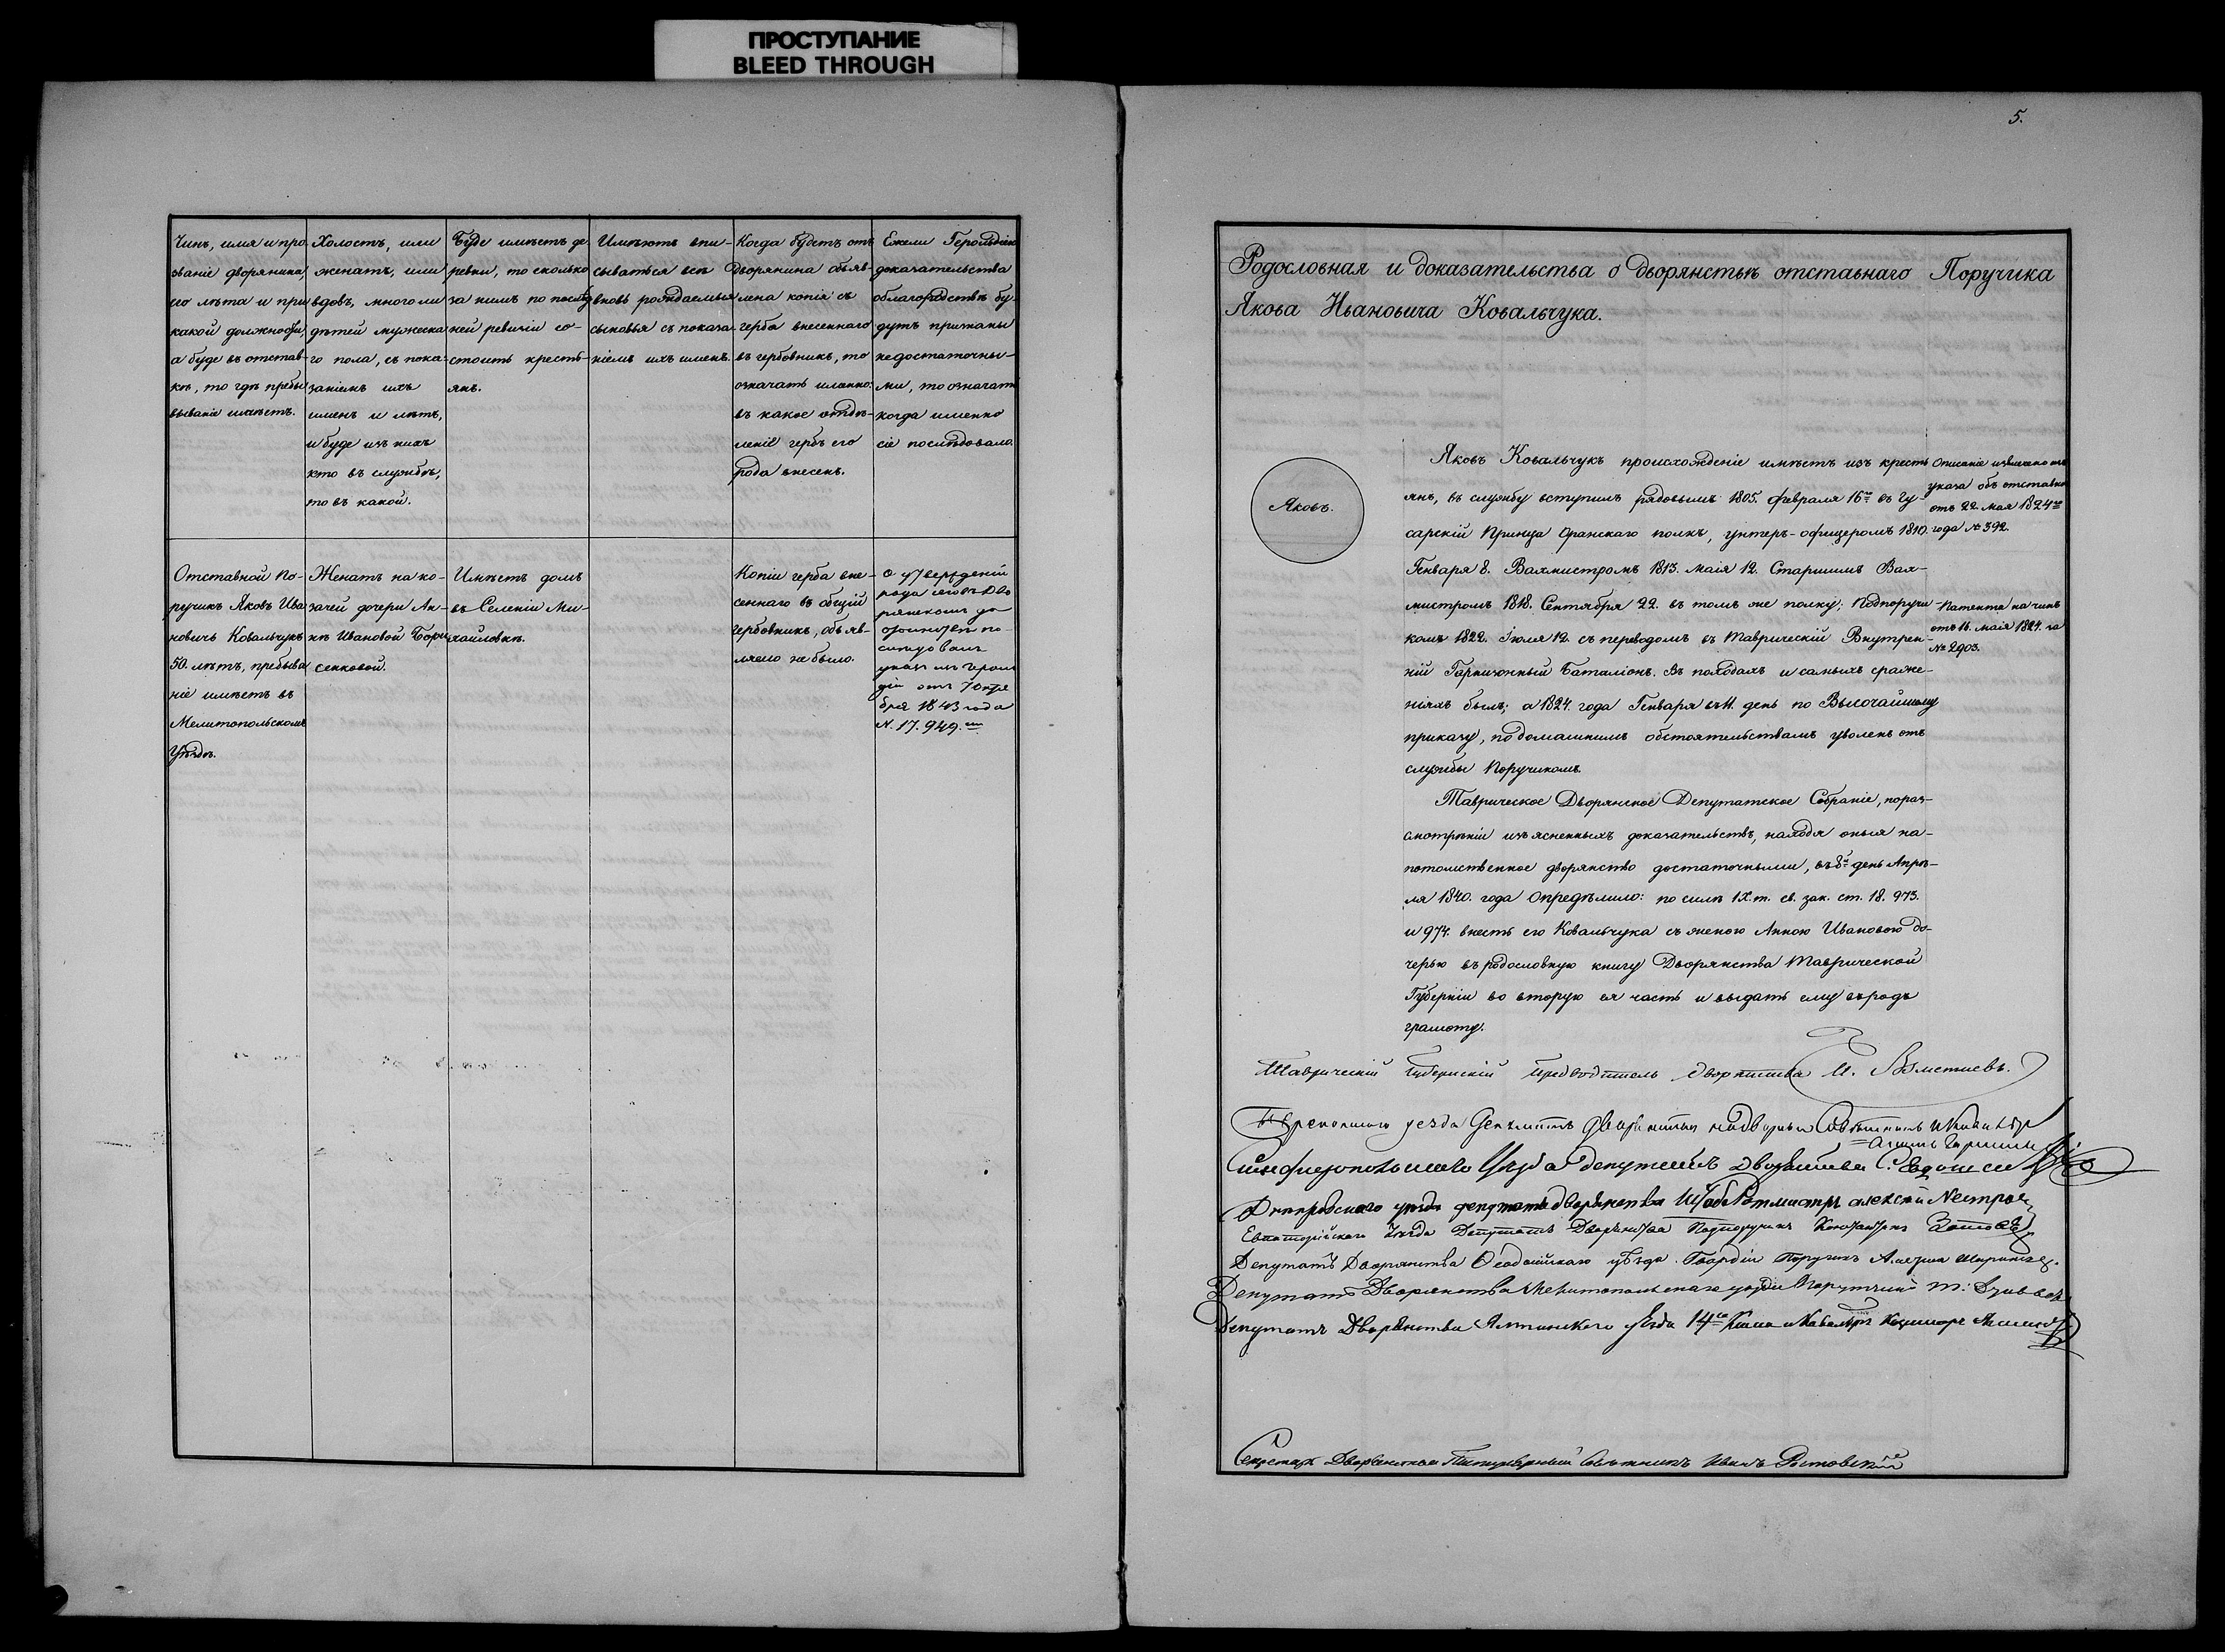 ПРОСТУПАНИЕ
BLEED THROUGH
Чинъ, имя и про
званіе дворянина,
его лѣта и при
какой должности,
а буде въ отстав-
кѣ, то гдѣ пребы
ваніе имѣетъ.
Холостъ, или
женатъ, или
вдовъ, много ли
дѣтей мужеска
го пола, съ пока-
заніемъ ихъ
именъ и лѣтъ,
и буде изъ нихъ
кто въ службѣ,
то въ какой.
Буде имѣетъ де
ревни, то сколько
за нимъ по послѣд
ней ревизіи со-
стоитъ кресть-
янъ.
Имѣютъ впи-
сываться всѣ
вновь рождаемые
сыновья съ показа-
ніемъ ихъ именъ.
Когда будетъ отъ
дворянина объяв-
лена копія съ
герба внесеннаго
въ гербовникъ, то
означать именно:
въ какое отдѣ-
леніе гербъ его
рода внесенъ.
Ежели Герольдіею
доказательства
о благородствѣ бу-
дутъ признаны
недостаточны-
ми, то означать
когда именно
сіе послѣдовало.
Отставной По-
ручикъ Яковъ Ива
новичъ Ковальчукъ
50. лѣтъ, пребыва
ніе имѣетъ въ
Мелитопольскомъ
Уѣздѣ.
Женатъ на ко-
зачей дочери Ан-
нѣ Ивановой Бори
сенковой.
Имѣетъ домъ
въ Селеніи Ми-
хайловкѣ.
Копіи герба вне-
сеннаго въ общій
гербовникъ, объяв-
ляемо не было.
О утвержденіи
рода сего въ Дво
рянскомъ до
стоинствѣ по-
слѣдовалъ
указъ изъ Героль
діи отъ 7 Октя
бря 1843 года
N. 17.949.
5.
Родословная и доказательства о дворянствѣ отставнаго Поручика
Якова Ивановича Ковальчука.
Яковъ.
Яковъ Ковальчукъ происхожденіе имѣетъ изъ кресть
янъ, въ службу вступилъ рядовымъ 1805. февраля 16го въ Гу-
сарскій Принца Оранскаго полкъ, унтеръ-офицеромъ 1810.
Генваря 8. Вахмистромъ 1813. маія 12. Старшимъ Вах-
мистромъ 1818. Сентября 22. въ томъ же полку; Подпоручи-
комъ 1822. Іюля 12. съ переводомъ въ Таврическій Внутрен-
ній Гарнизонный Баталіонъ. Въ походахъ и самыхъ сраже-
ніяхъ былъ; а 1824. года Генваря въ 11. день по Высочайшему
приказу, по домашнимъ обстоятельствамъ уволенъ отъ
службы Поручикомъ.
Описаніе извлечено изъ
указа объ отставкѣ
отъ 22. мая 1824го
года № 392.
Патента на чинъ
отъ 16. маія 1824. за
№ 2903.
Таврическое Дворянское Депутатское Собраніе, по раз-
смотрѣніи изъясненныхъ доказательствъ, находя оныя на-
потомственное дворянство достаточными, въ 8й день Апрѣ-
ля 1840. года Опредѣлило: по силѣ IX. т. св. зак. ст. 18. 973.
и 974. внесть его Ковальчука съ женою Анною Ивановою до-
черью въ родословную книгу Дворянства Таврической
Губерніи во вторую ея часть и выдать ему въ родъ
грамоту.
Таврическій Губернскій Предводитель дворянства
уезда Депутатъ дворянства надворный Совѣтникъ и Кавалеръ
Симферопольскаго Уѣзда депутатъ дворянства
Днепровскаго уѣзда депутатъ дворянства Штабъ Ротмистръ Алексѣй
Евпаторійскаго Уѣзда Депутатъ Дворянства Подпоручикъ
Депутатъ Дворянства Ѳеодосійскаго уѣзда Гвардіи Поручикъ
Депутатъ Дворянства Мелитопольскаго уѣзда
Депутатъ Дворянства Ялтинскаго уѣзда 14го Класа и Кавалеръ
Секретарь Дворянства Титулярный Совѣтникъ Иванъ Ростовскій